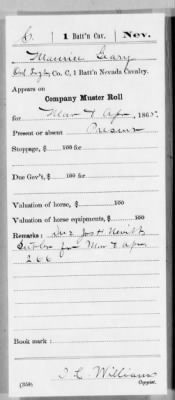 C. | 1 Batt'n Cav. | Nev.
Maurice Geary
Co. C, 1 Batt'n Nevada Cavalry.
Appears on
Company Muster Roll
for Mar & Apr, 1865.
Present or absent Present
Stoppage, $ 100 for
Due Gov't, $ 100 for
Valuation of horse, $ 100
Valuation of horse equipments, $ 100
Remarks: Due Jos H Nevitt
Sutler for Mar & Apr
266
Book mark:
J. L. Williams
(358) Copyist.